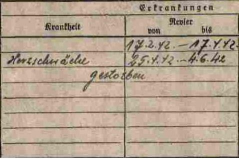 Erkrankungen
Krankheit
Revier
von bis
17.2.42. – 17.4.42.
Herzschwäche 25.4.42 – 4.6.42
gestorben